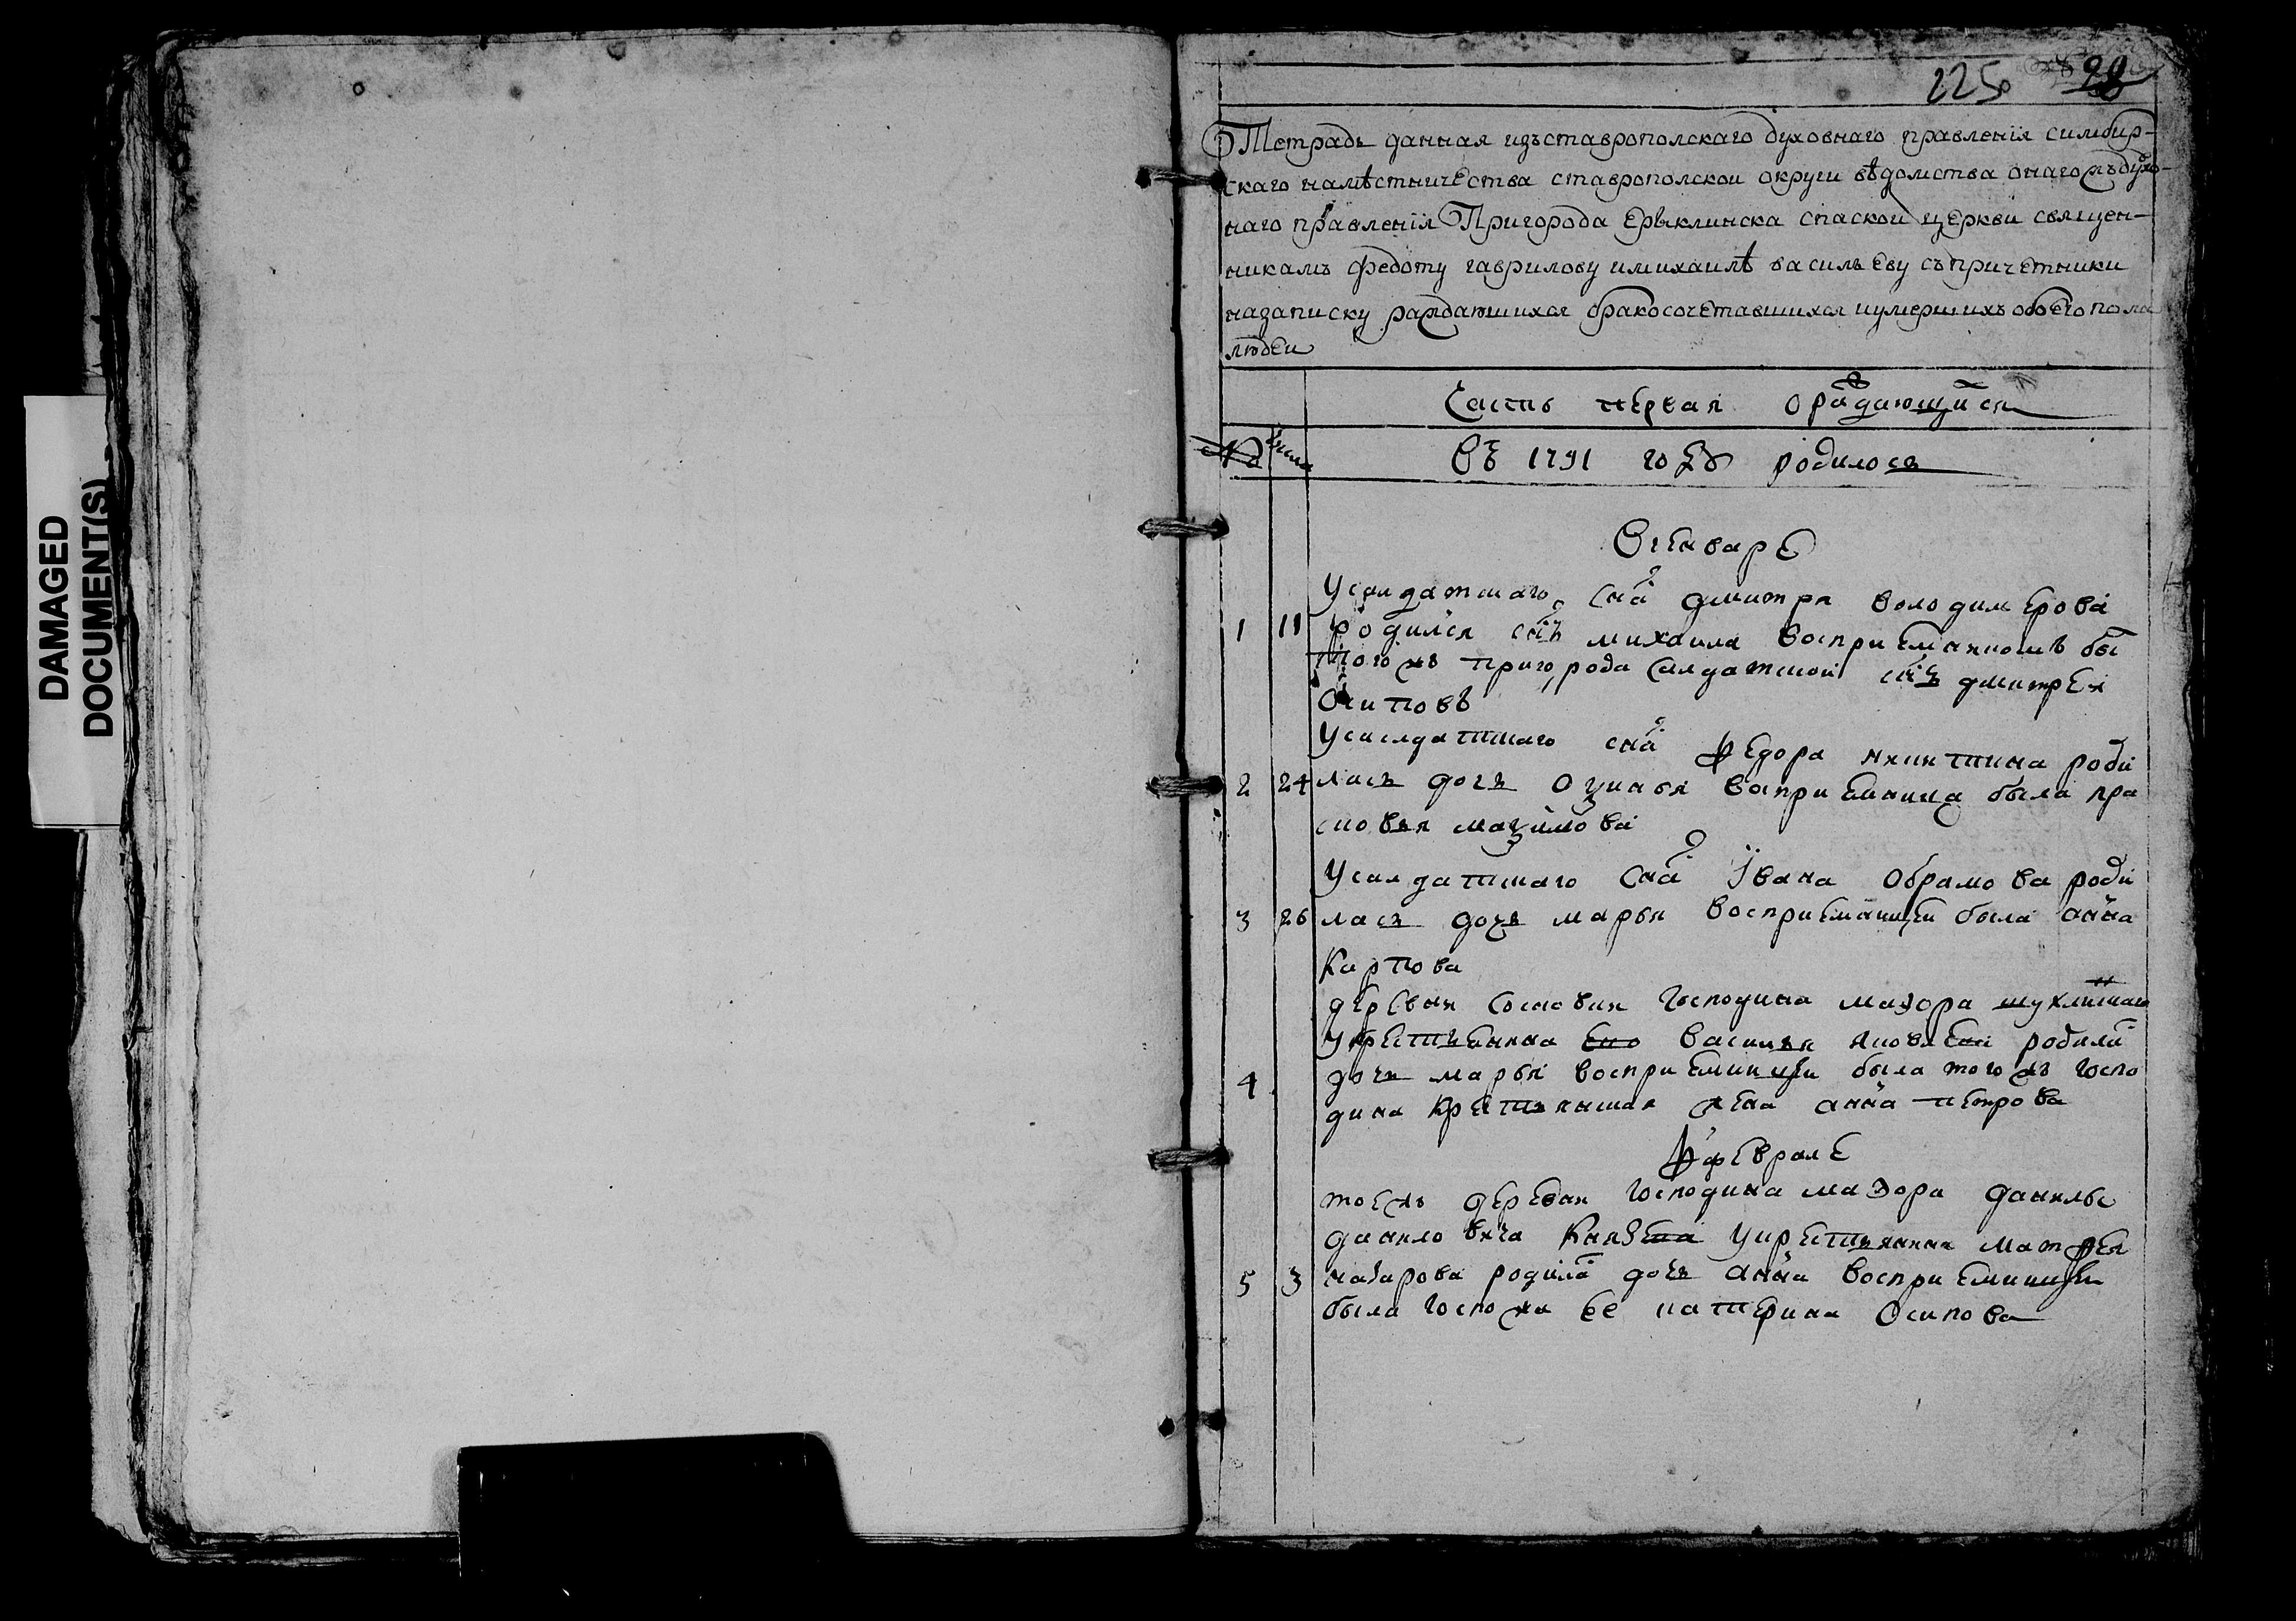 DAMAGED
DOCUMENT(S)
225
Тетрадь данная изъставрополскаго духовнаго правленїя симбир-
скаго намѣстничества ставрополской округи вѣдомства онагожъдухо-
внаго правленїя Пригорода Ерыклинска спаской церкви священ-
никамъ федоту гаврилову имихаилѣ васильеву съпричетники
назаписку раждавшихся бракосочетавшихся иумершихъ обоего пола
людеи
Часть первая о раждающися
№ числа
Въ 1791 году родилось
Вгенваре
Усалдатцкаго сна дмитря володимерова
1 11 родился снъ михаила восприемникомъ бы
тогожъ пригорода салдатской снъ дмитреи
Осиповъ
Усасалдатцкаго сна федора никитина роди
2 24 лась дочь восприемница была пра
сковья мазимова
Усалдатцкаго сна Iвана обрамова роди
3 26 лась дочь марья восприемницеи была анна
Карпова
деревни господина маэора
Укрестьянина ево василья яковлева родила
4 дочь марья восприемницеи была того жъ госпо
дина крестьянина жена анна петрова
вфеврале
тоежъ деревни господина маэора данилы
даниловича укрестьянина матфея
5 3 назарова родила дочь анна восприемницеи
была госпожа ее катерина Осипова